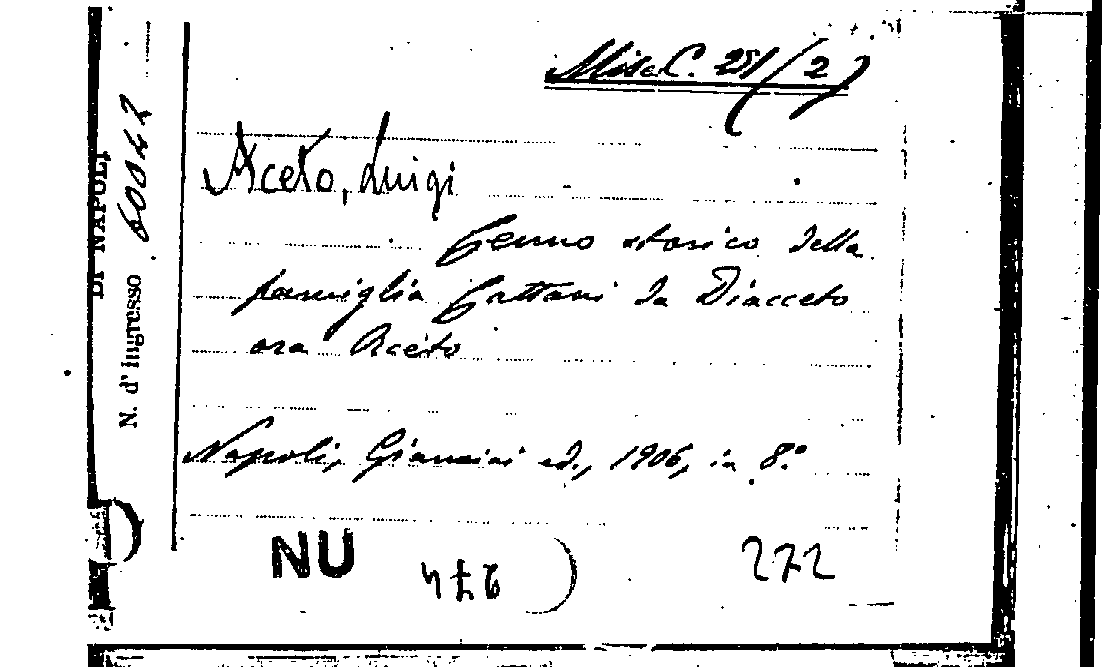 Misc. C. 251/(2)
Aceto, Luigi
Cenno storico della
famiglia Cattani da Diacceto
ora Aceto
Napoli, Giannini ed., 1906, in 8.°
NU
272
274
DI NAPOLI
N. d'Ingresso 60042